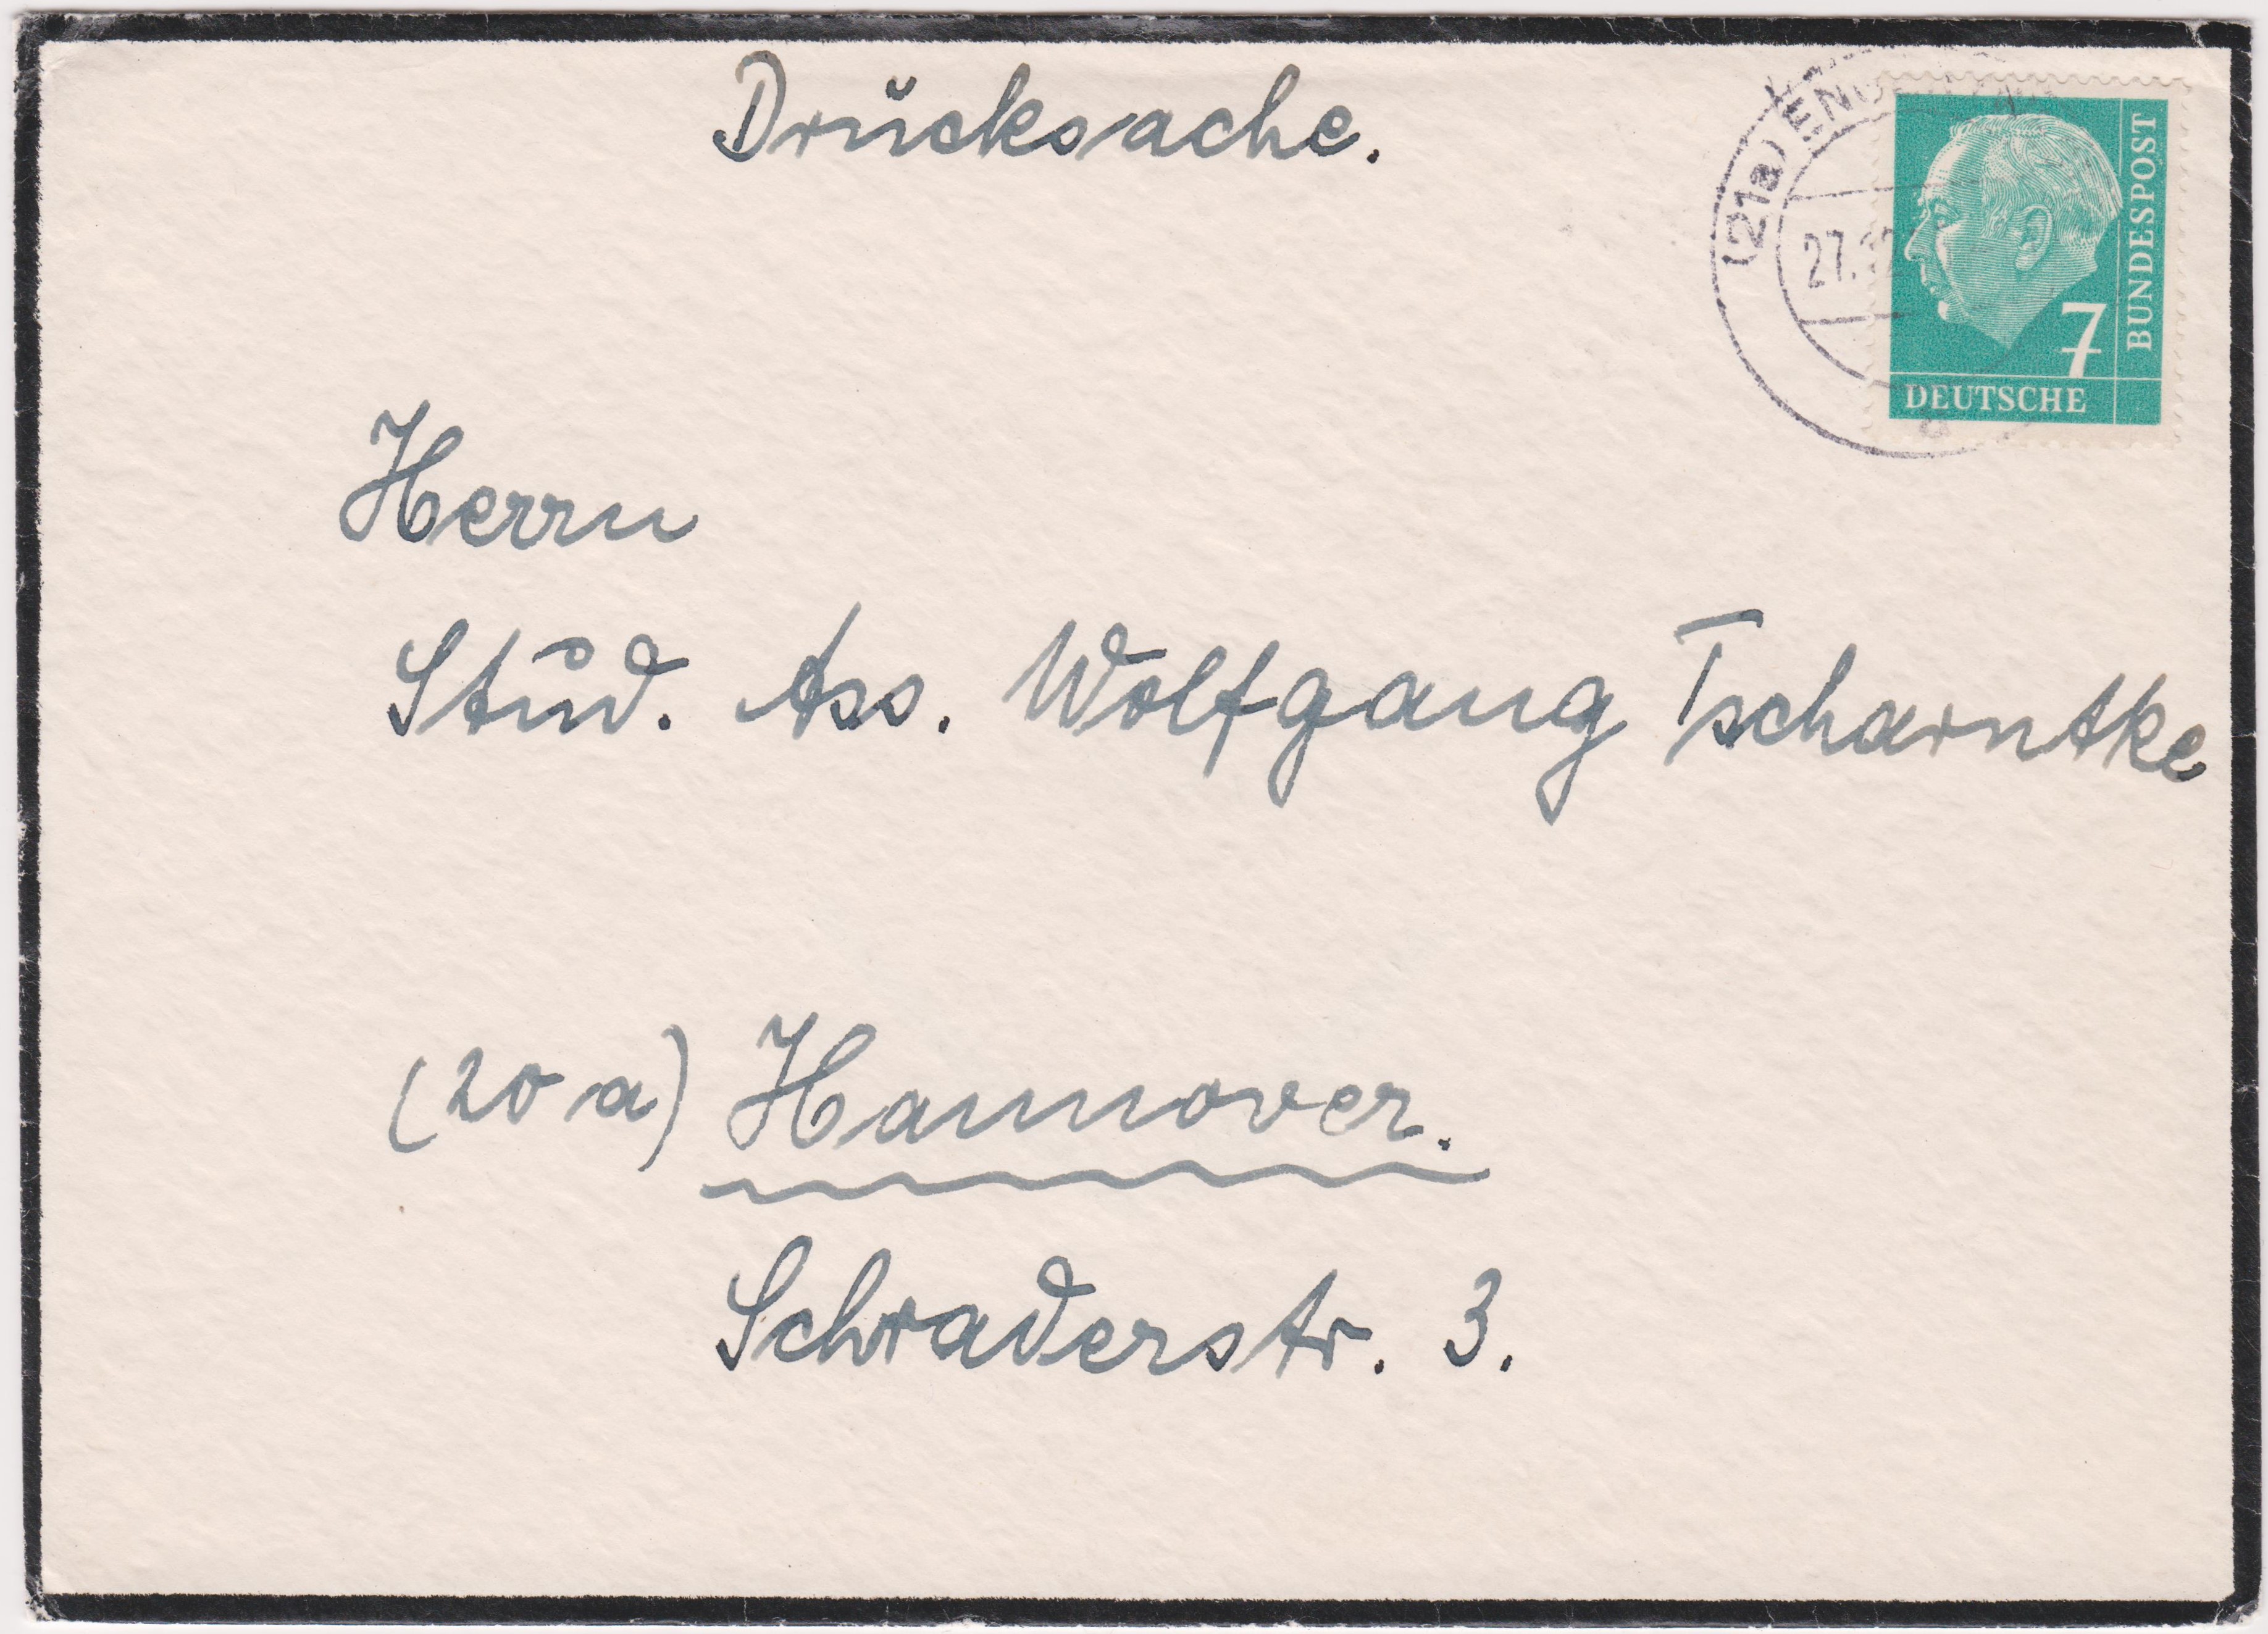 Drucksache.
(21a)
27.
7
BUNDESPOST
DEUTSCHE
Herrn
Stud. Ass. Wolfgang Tscharntke
(20a) Hannover.
Schraderstr. 3.